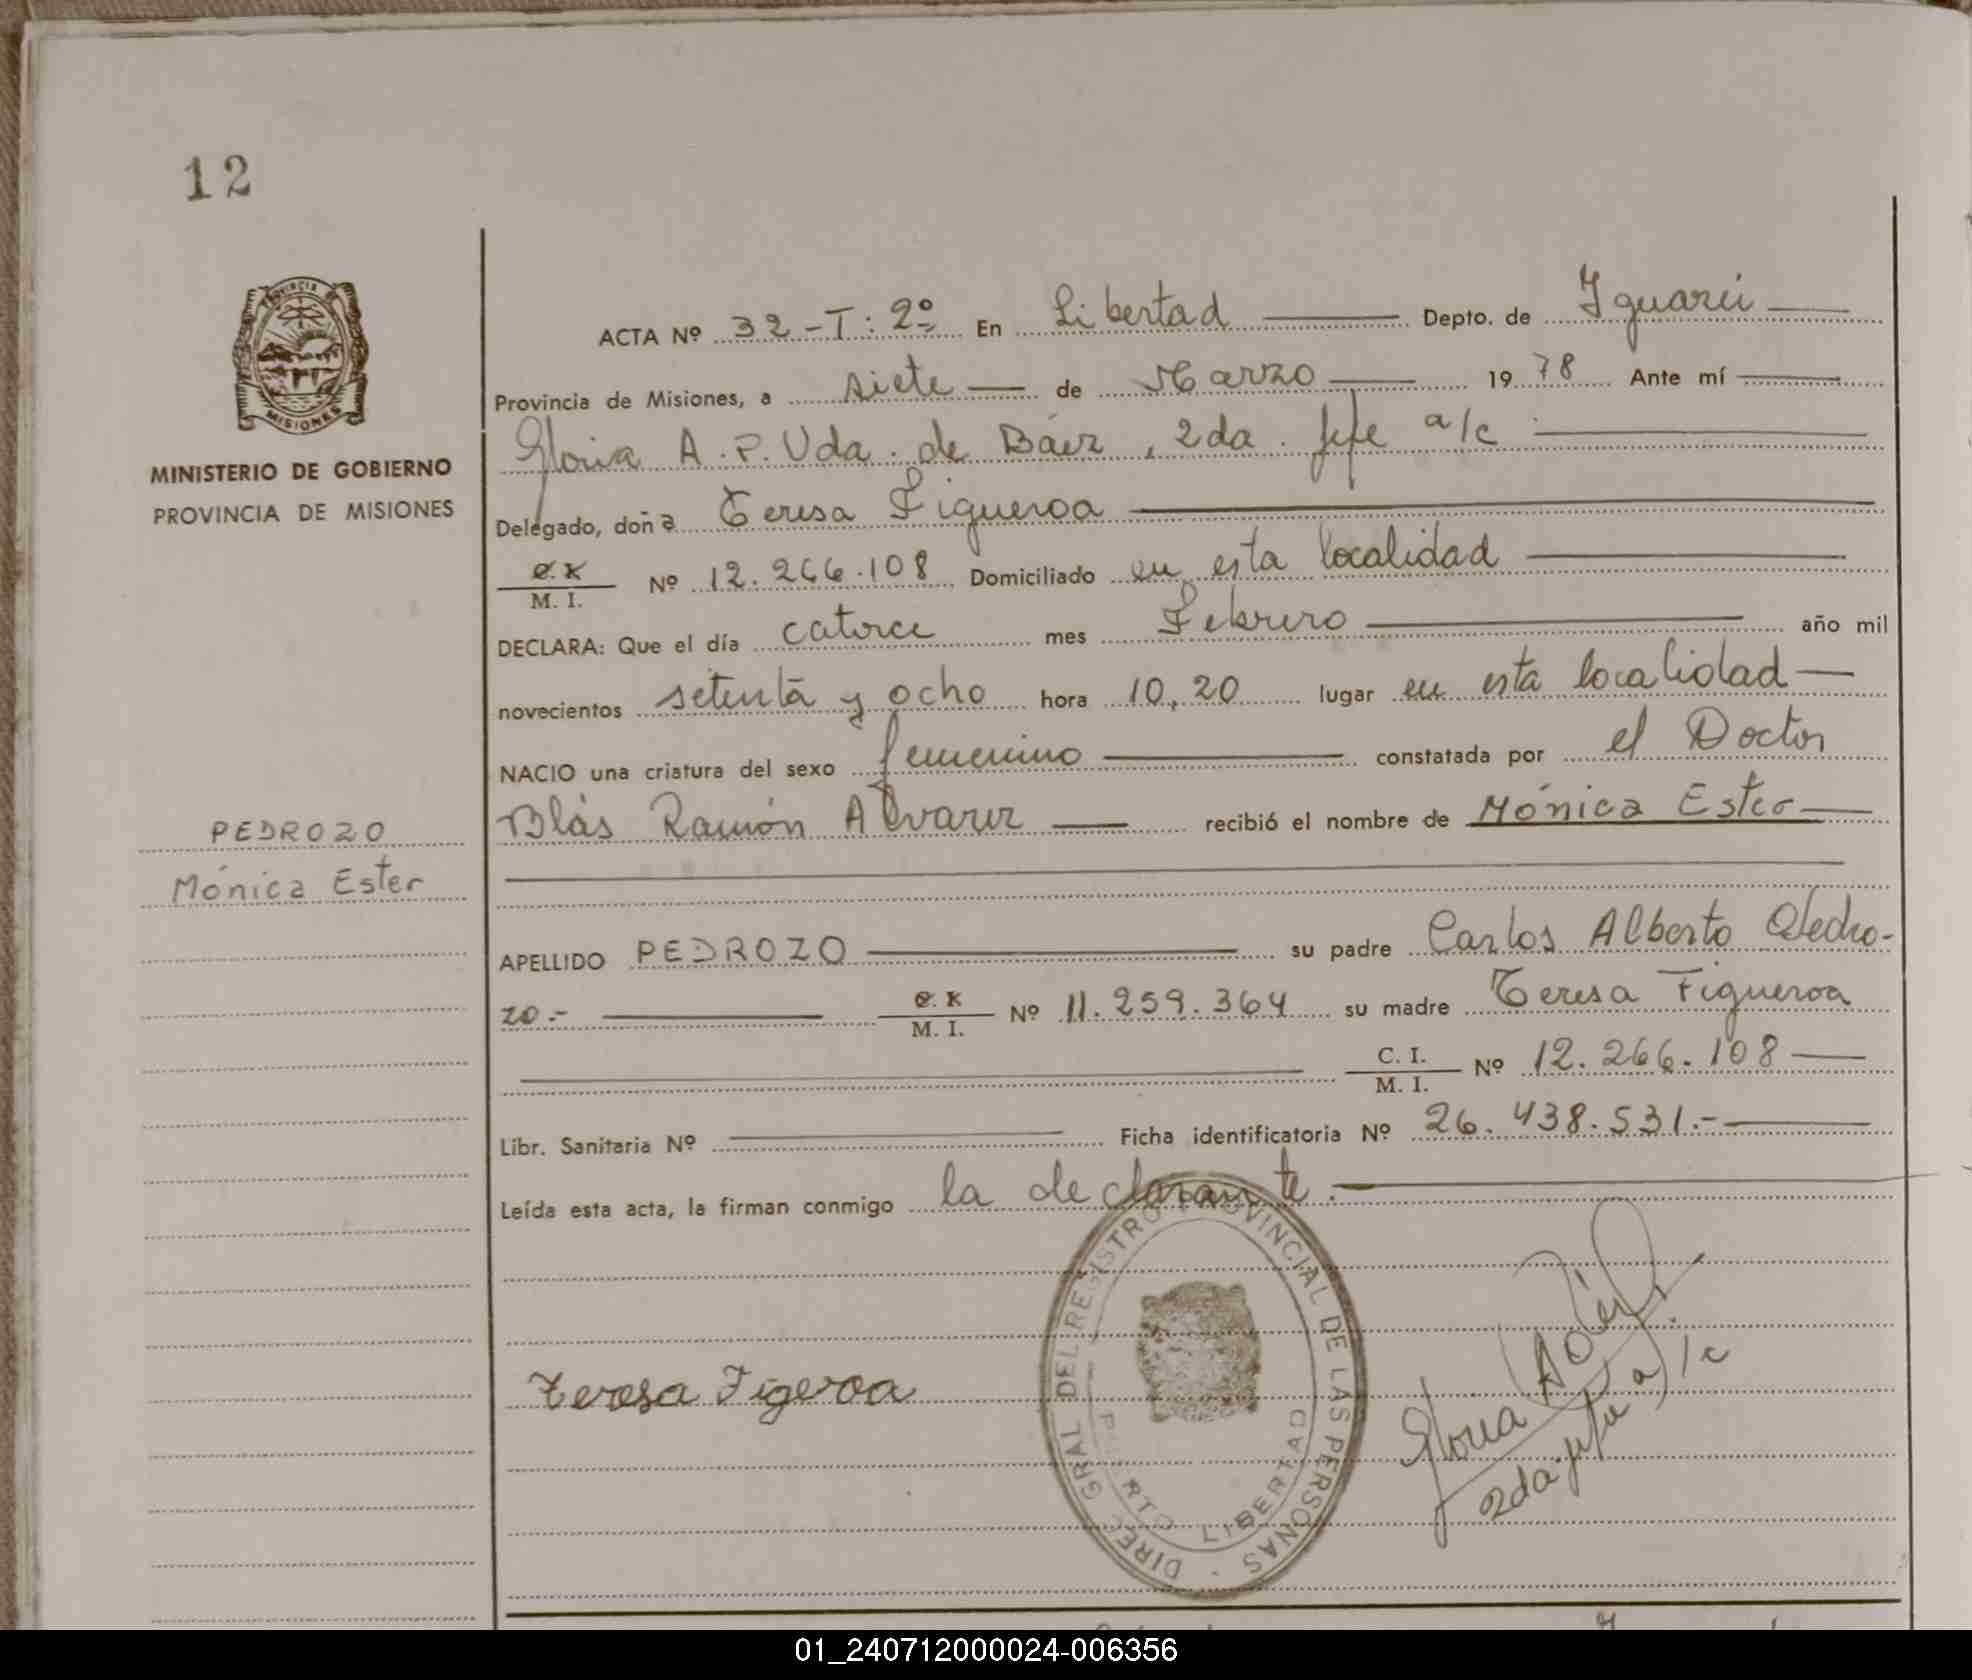 12
PROVINCIA DE
MISIONES
MINISTERIO DE GOBIERNO
PROVINCIA DE MISIONES
PEDROZO
Mónica Ester
ACTA Nº 32-T: 2º En Libertad Depto. de Iguazú
Provincia de Misiones, a siete de Marzo 1978 Ante mí
Gloria A. P. Vda. de Báez, 2da. jefe a/c
Delegado, doña Teresa Figueroa
C. I. / M. I. Nº 12.266.108 Domiciliado en esta localidad
DECLARA: Que el día catorce mes Febrero año mil
novecientos setenta y ocho hora 10,20 lugar en esta localidad
NACIO una criatura del sexo femenino constatada por el Doctor
Blás Ramón Alvarez recibió el nombre de Mónica Ester
APELLIDO PEDROZO su padre Carlos Alberto Pedro-
zo.- C. I. / M. I. Nº 11.259.364 su madre Teresa Figueroa
C. I. / M. I. Nº 12.266.108
Libr. Sanitaria Nº Ficha identificatoria Nº 26.438.531.-
Leída esta acta, la firman conmigo la declarante.
Teresa Figeroa
DIREC. GRAL. DEL REGISTRO PROVINCIAL DE LAS PERSONAS
PUERTO LIBERTAD
Gloria A
2da. jefe a/c
01_240712000024-006356